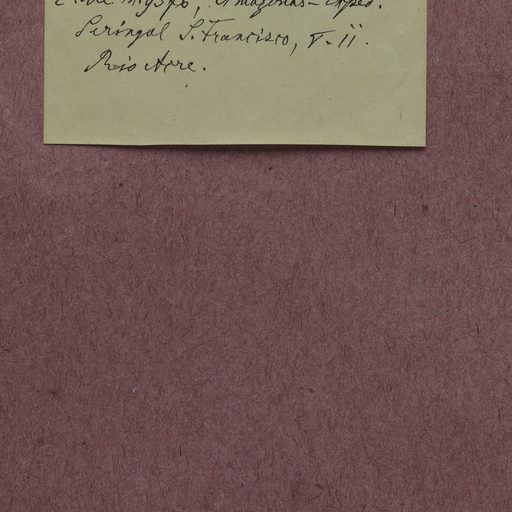 Amazonas-Exped.
Seringal S. Francisco, V. ii.
Rio Acre.